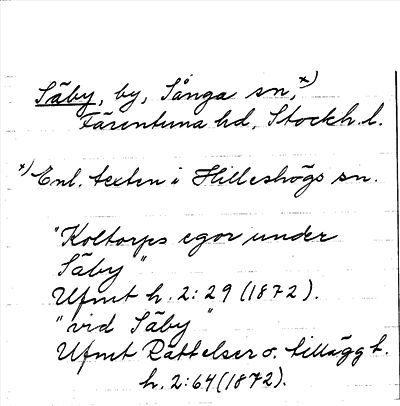 Säby, by, Sånga sn,ˣ⁾
Färentuna hd, Stockh. l.
ˣ⁾ Enl. texten i Hilleshögs sn.
"Koltorps egor under
Säby"
Ufmt h. 2:29 (1872).
"vid Säby"
Ufmt Rättelser o. tillägg t.
h. 2:64 (1872).